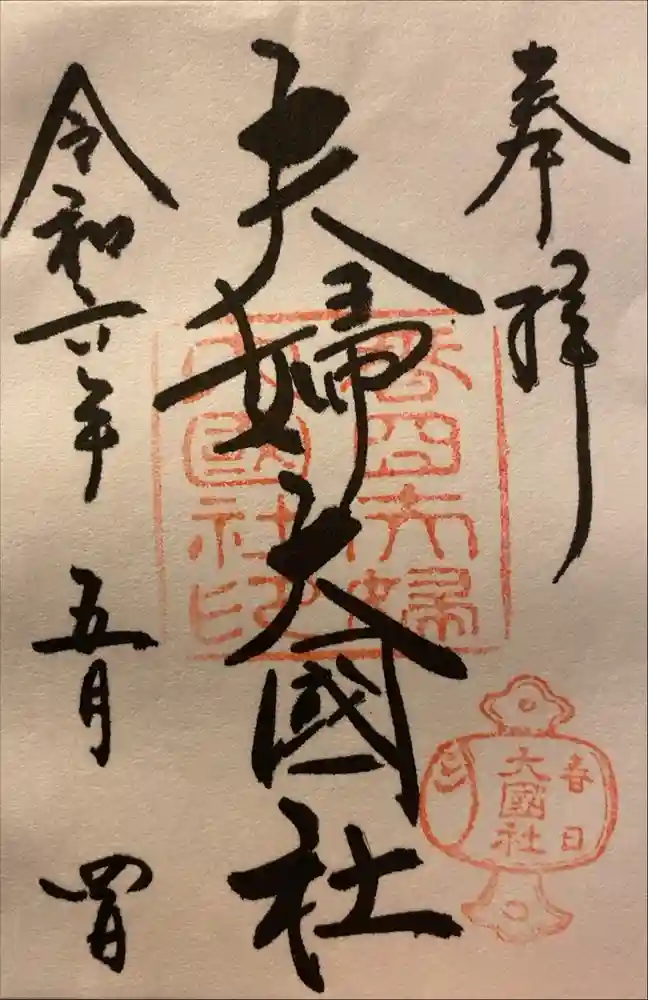 奉拝
夫婦大國社
春日夫婦
大國社印
春日
大國社
令和六年 五月 四日